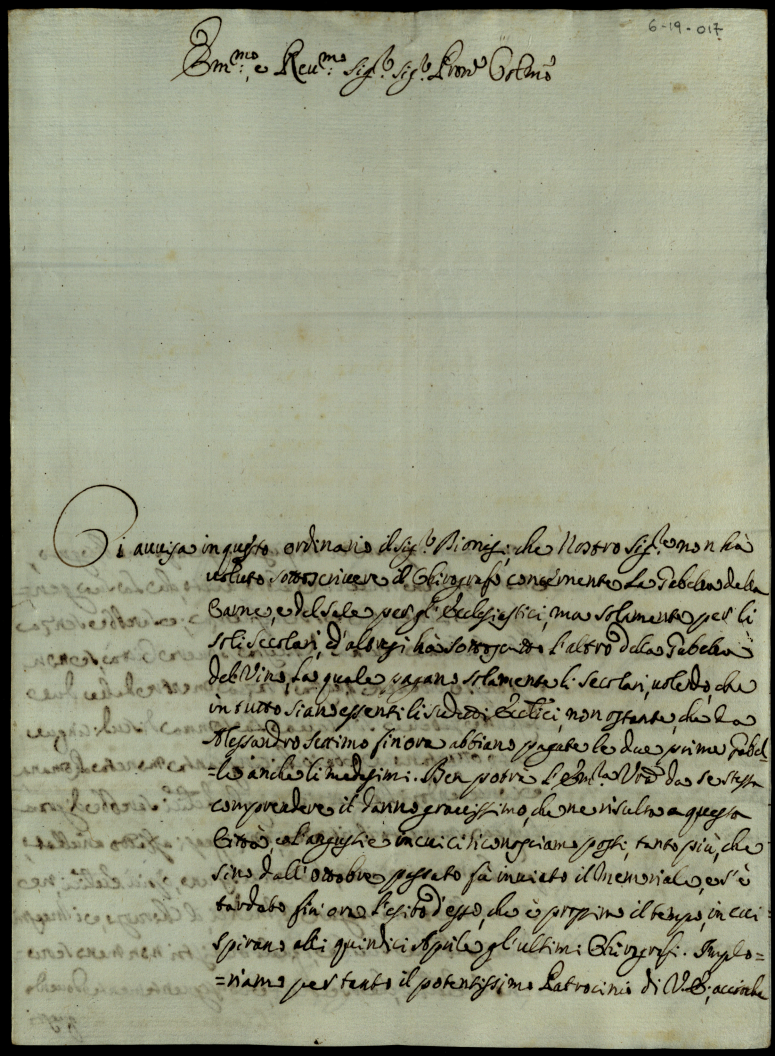 6-19-017
Em:mo e Reu:mo Sig:r Sig:r Pron Colmo
Ci auuisa in questo ordinario il Sig:r Dionigi, che Nostro Sig:re non hà
uoluto sottoscriuere il Chirografo concernente la Gabella della
Carne, e del Sale per gl'Ecclesiastici, ma solamente per li
soli Secolari, ed all'oggi hà sottoscritto l'altro della Gabella
del Vino, la quale pagano solamente li Secolari, uolendo, che
in tutto siano essenti li sudetti Ecclici, non ostante, che da
Alessandro Settimo fin ora abbiano pagate le due prime Gabel-
=le anche li medesimi. Ben potrà l'Em:a Vra da se stessa
comprendere il danno grauissimo, che ne risulta a questa
Città, e l'angustie in cui ci riconosciamo posti, tanto più, che
sino dall'Ottobre passato fù inuiato il Memoriale, e s'è
tardato fin ora l'esito d'esso, che è prossimo il tempo, in cui
spirano alli quindici Aprile gl'ultimi Chirografi. Implo=
=riamo per tanto il potentissimo Patrocinio di V.E., accioche